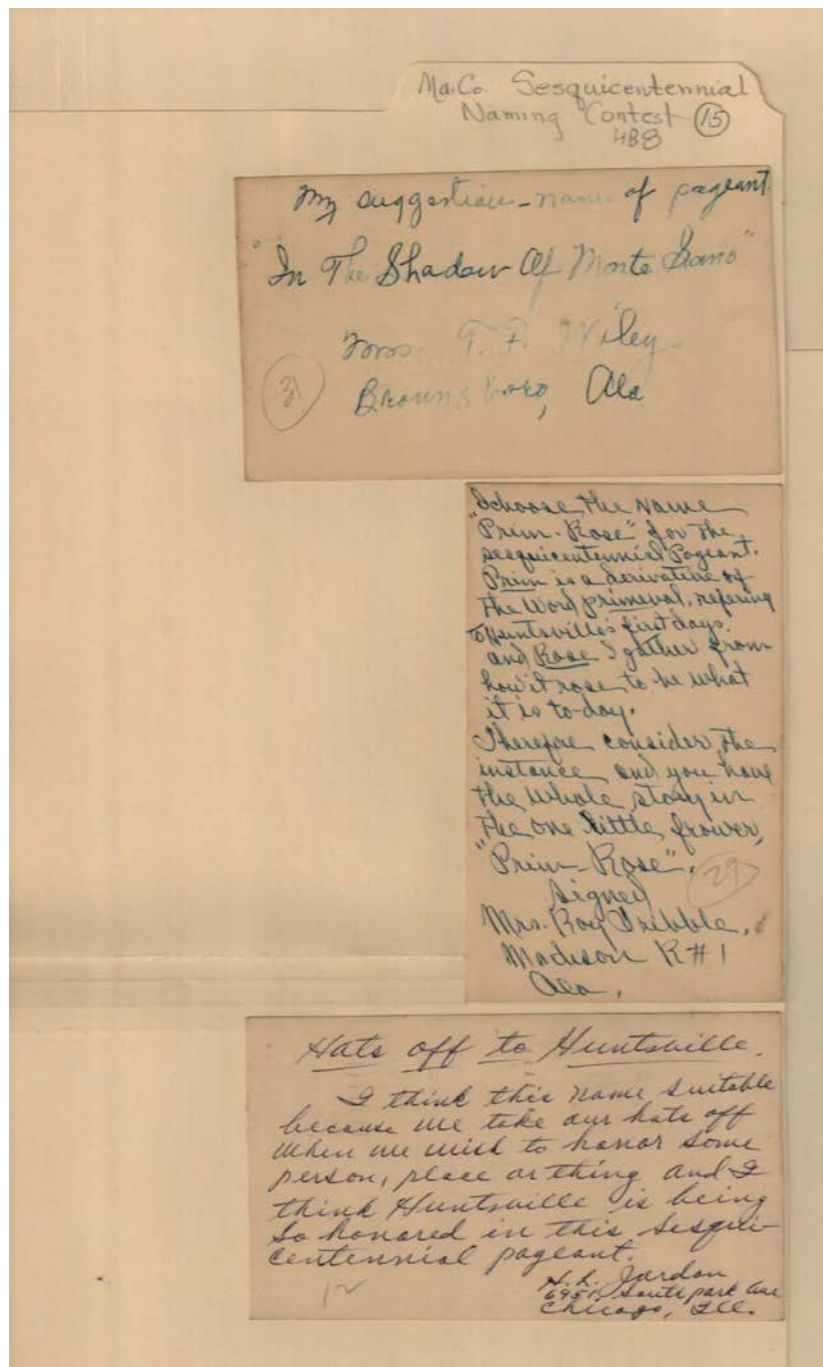 Ma. Co. Sesquicentennial
Naming Contest 15
4B8
My suggestion - name of pageant
"In The Shadow Of Monte Sano"
Mrs. T. P. Wiley
Brownsboro, Ala
31
I choose the Name
"Prim-Rose" for the
sesquicentennial Pageant.
Prim is a derivative of
the word primeval, refering
to Huntsville's first days.
and Rose I gather from
how it rose to be what
it is to-day.
Therefore consider the
instance and you have
the whole story in
the one little frower,
"Prim-Rose".
29
Signed
Mrs. Roy Tribble,
Madison R#1
Ala.
Hats off to Huntsville.
I think this name suitable
because we take our hats off
when we wish to honor some
person, place or thing and I
think Huntsville is being
so honored in this sesqui-
centennial pageant.
12
H. L. Jordan
South park Ave
Chicago, Ill.